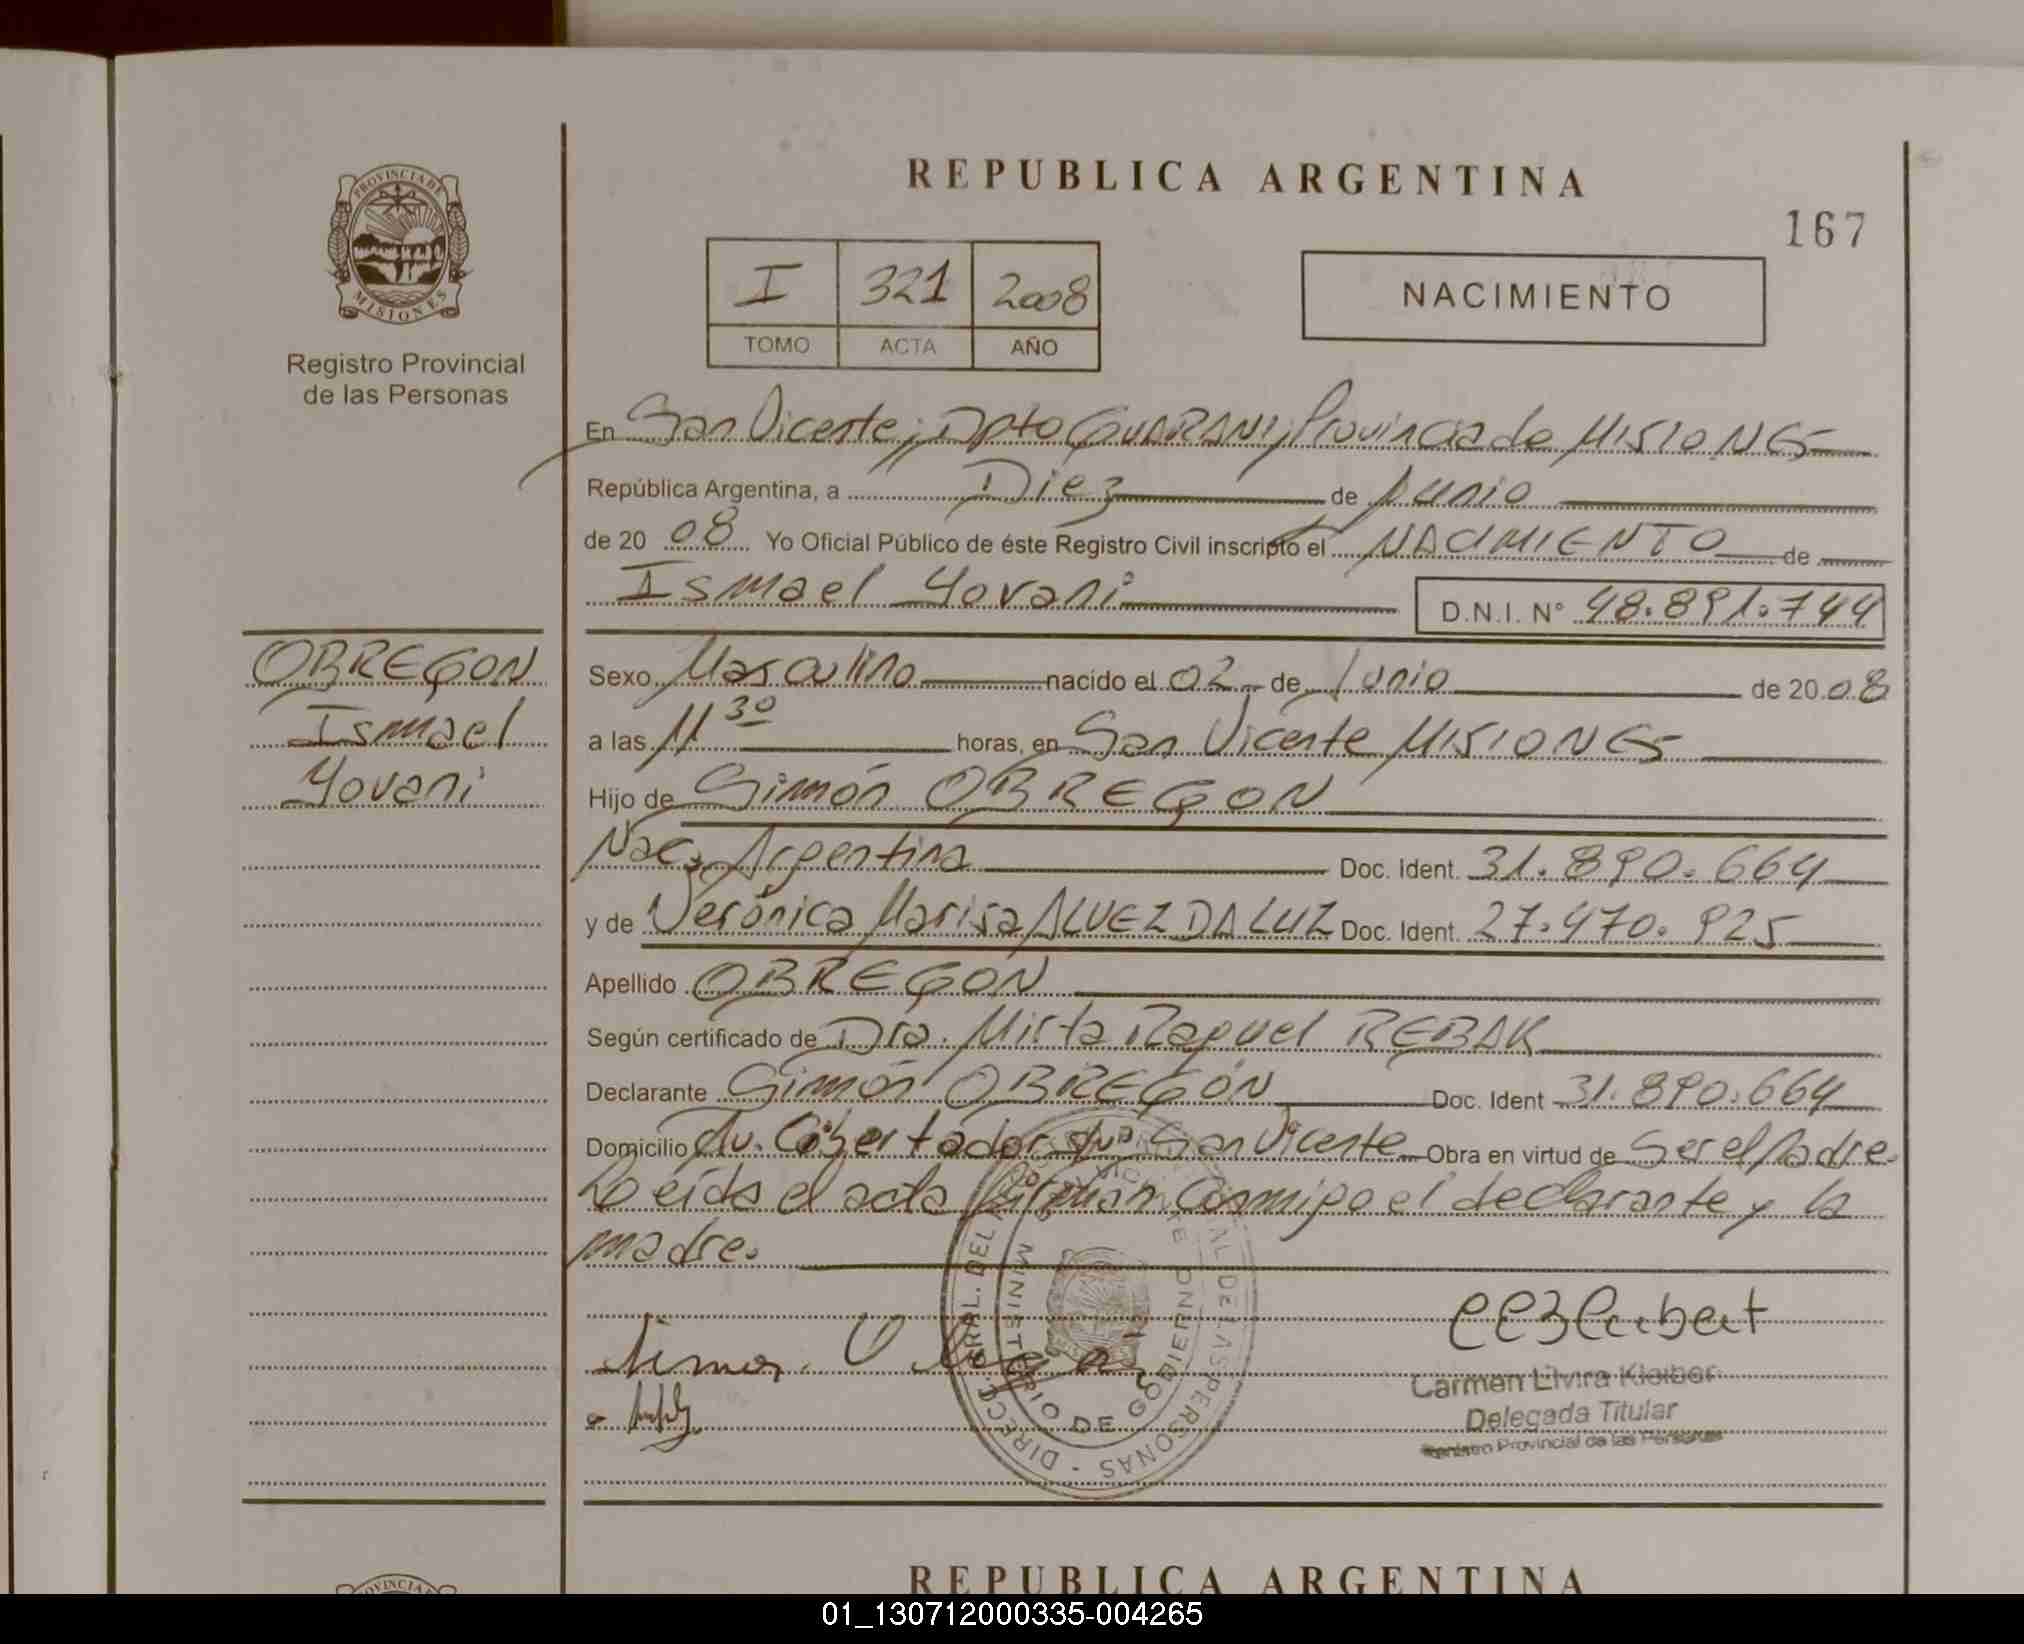 PROVINCIA DE
MISIONES
Registro Provincial
de las Personas
REPUBLICA ARGENTINA
167
I 321 2008
TOMO ACTA AÑO
NACIMIENTO
En San Vicente, Dpto GUARANI, Provincia de MISIONES
República Argentina, a Diez de Junio
de 20 08 Yo Oficial Público de éste Registro Civil inscripto el NACIMIENTO de
Ismael Yovani D.N.I. Nº 48.891.744
OBREGON
Ismael
Yovani
Sexo Masculino nacido el 02 de Junio de 20 08
a las 11 30 horas, en San Vicente MISIONES
Hijo de Simón OBREGON
Nac. Argentina Doc. Ident. 31.890.664
y de Verónica Marisa ALVEZ DA LUZ Doc. Ident. 27.470.925
Apellido OBREGON
Según certificado de Dra. Mirta Raquel REBAK
Declarante Simón OBREGÓN Doc. Ident 31.890.664
Domicilio Av. Libertador San Vicente Obra en virtud de Ser el Padre.
Leída el acta firman Conmigo el declarante y la
madre.
DIRECC. GRAL. DEL REGISTRO PROVINCIAL DE LAS PERSONAS
MINISTERIO DE GOBIERNO
Simon
Carmen Elvira Kleiber
Delegada Titular
Registro Provincial de las Personas
PROVINCIA
REPUBLICA ARGENTINA
01_130712000335-004265